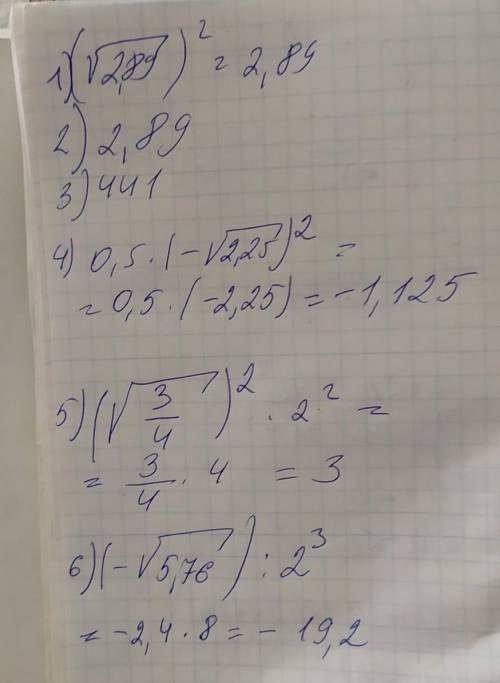 1) (√2,89)² = 2,89
2) 2,89
3) 441
4) 0,5 · (-√2,25)² =
= 0,5 · (-2,25) = -1,125
5) (√3/4)² · 2² =
= 3/4 · 4 = 3
6) (-√5,76) : 2³
= -2,4 · 8 = - 19,2